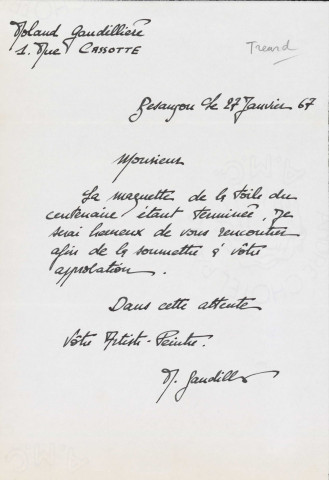 Roland Gaudillière
1. Rue CASSOTTE
Treand
Besançon le 27 Janvier 67
Monsieur
La maquette de la toile du
centenaire étant terminée, je
serai heureux de vous rencontrer
afin de la soumettre à vôtre
approbation.
Dans cette attente
Vôtre Artiste-Peintre.
R. Gaudill